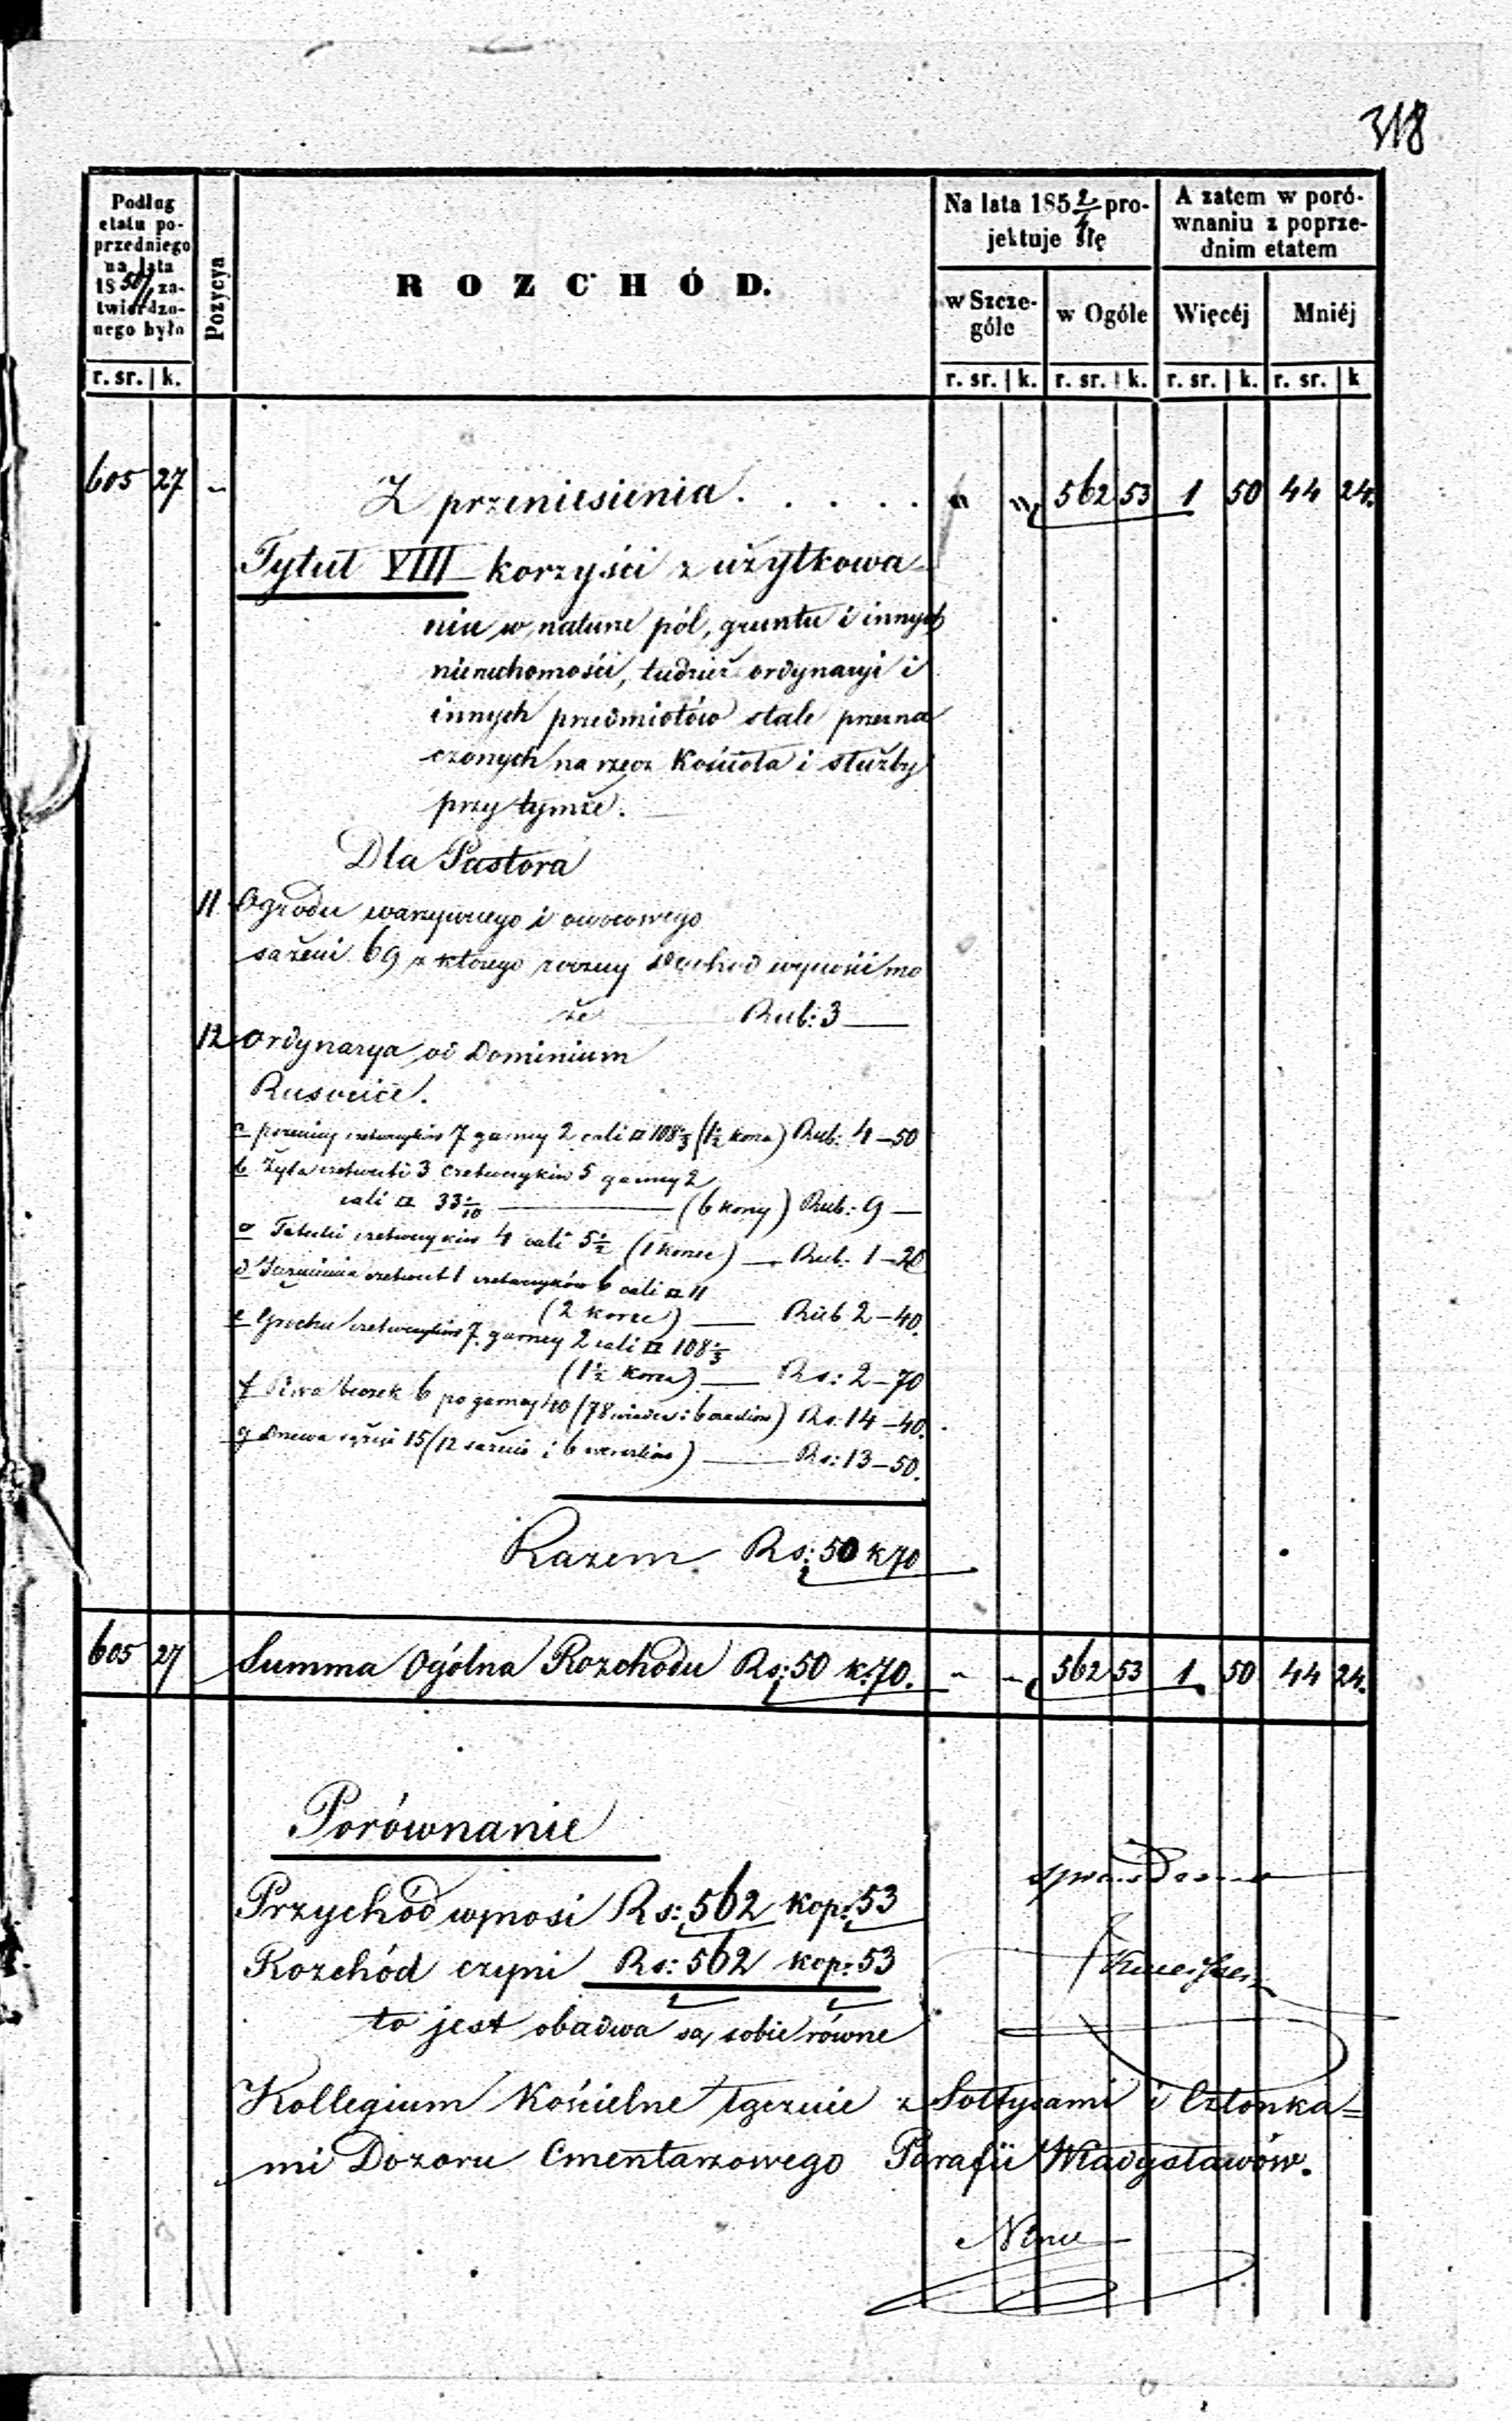 318
Podług etatu poprzedniego na lata 18 50/1 zatwierdzonego było
Pozycya
ROZCHÓD.
Na lata 185 2/4 projektuje się
A zatem w porównaniu z poprzednim etatem
w Szczególe
w Ogóle
Więcéj
Mniéj
r. sr. | k. r. sr. | k. r. sr. | k. r. sr. | k. r. sr. | k
605 27 - Z przeniesienia . . . . . " " 562 53 1 50 44 24.
Tytuł VIII korzyści z użytkowa-
nia w naturze pól, gruntu i innych
nieruchomości, tudzież ordynaryi i
innych przedmiotów stale przezna
czonych na rzecz Kościoła i służby
przy tymże.
Dla Pastora
11 Ogrodu warzywnego i owocowego
sażeni 69 z którego roczny dochód wynosić mo
że Rub: 3 —
12 Ordynarya od Dominium
Russocice.
a pszenicy czetwerykow 7 garncy 2 cali □ 108 1/3 (1 1/2 korca) Rub: 4 — 50
b Żyta czetwerti 3 czetwerykow 5 garncy 2
cali □ 33 1/10 — (6 korcy) Rub: 9 —
c Tatarki czetwerykow 4 cali 5 1/2 (1 korzec) — Rub: 1 — 20
d Jęczmienia czetwert 1 czetwerykow 6 cali □ 11
(2 korce) — Rub 2 — 40.
e Grochu czetwerykow 7 garncy 2 cali □ 108 1/3
(1 1/2 korca) — Rs: 2 — 70
f Piwa beczek 6 po garncy 40 (78 wiader i 6 ) Rs. 14 — 40.
g Drzewa sążni 15 (12 sażeni i 6 ) — Rs: 13 — 50.
Razem Rs: 50 k 70
605 27 Summa Ogólna Rozchodu Rs: 50 k: 70. - - 562 53 1 50 44 24.
Porównanie
Przychód wynosi Rs: 562 kop: 53
Rozchód czyni Rs: 562 kop: 53
to jest obadwa są sobie równe
Kollegium Kościelne łącznie z Sołtysami i Członka=
mi Dozoru Cmentarzowego Parafii Władysławów.